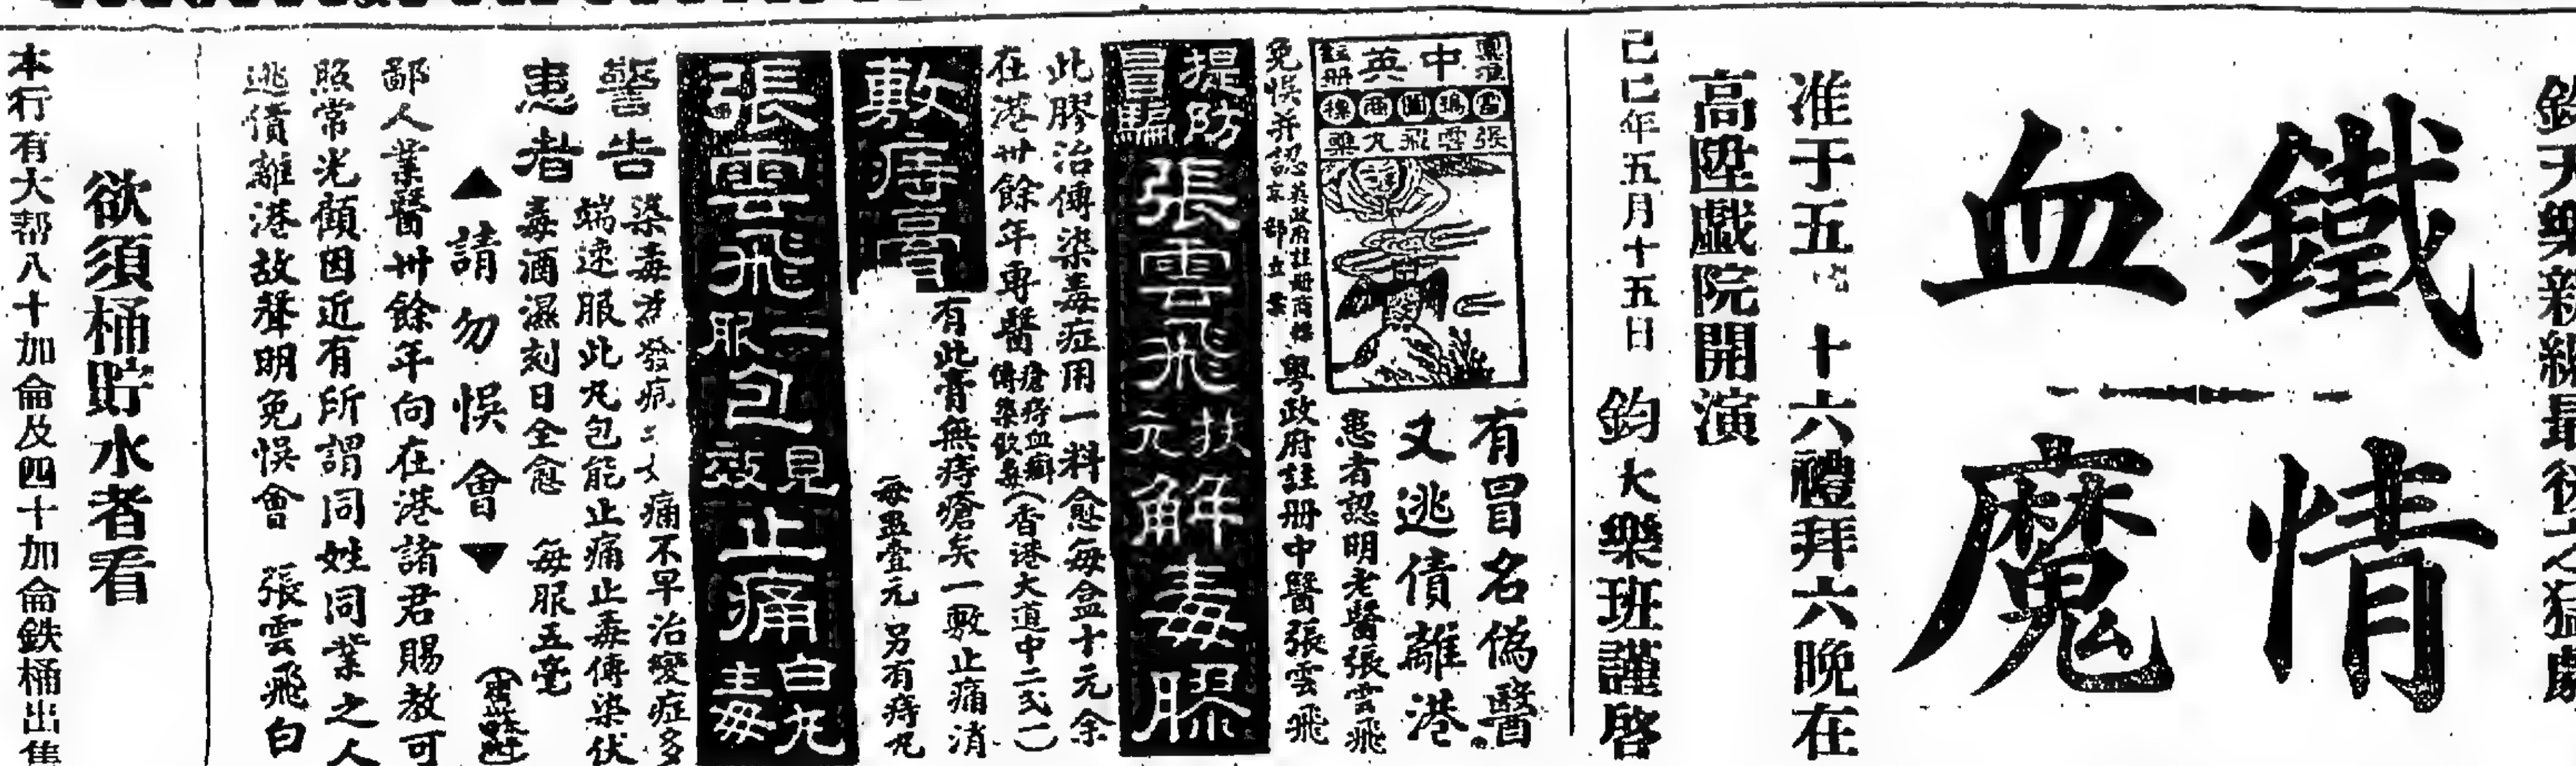 鐵血
情魔
准于五 十六禮拜六晚在
高陞戲院開演
己巳年五月十五日 鈞天樂班謹啓
有冒名偽醫
又逃債離港
患者認明老醫張雲飛
中英
註冊
商標
張雲飛丸藥
免悞并認
英政府註冊商標
京部立案
粵政府註冊中醫張雲飛
提防冒騙
張雲飛扶元解毒膠
此膠治傳染毒症用一料愈每盒十元余
在港卅餘年專醫
瘡痔血癬
(香港大道中二弍一)
敷痔膏
有此膏無痔瘡矣一敷止痛消
每盅壹元 另有痔丸
張雲飛一包服見效止痛白丸毒
警告患者
染毒 發 痛不早治變症多
端速服此丸包能止痛止毒傳染伏
毒酒濕刻日全愈 每服五毫
▲請勿悞會▼
鄙人業醫卅餘年向在港諸君賜教可
照常光顧因近有所謂同姓同業之人
逃債離港故聲明免悞會 張雲飛白
欲須桶貯水者看
本行有大帮八十加侖及四十加侖鉄桶出售